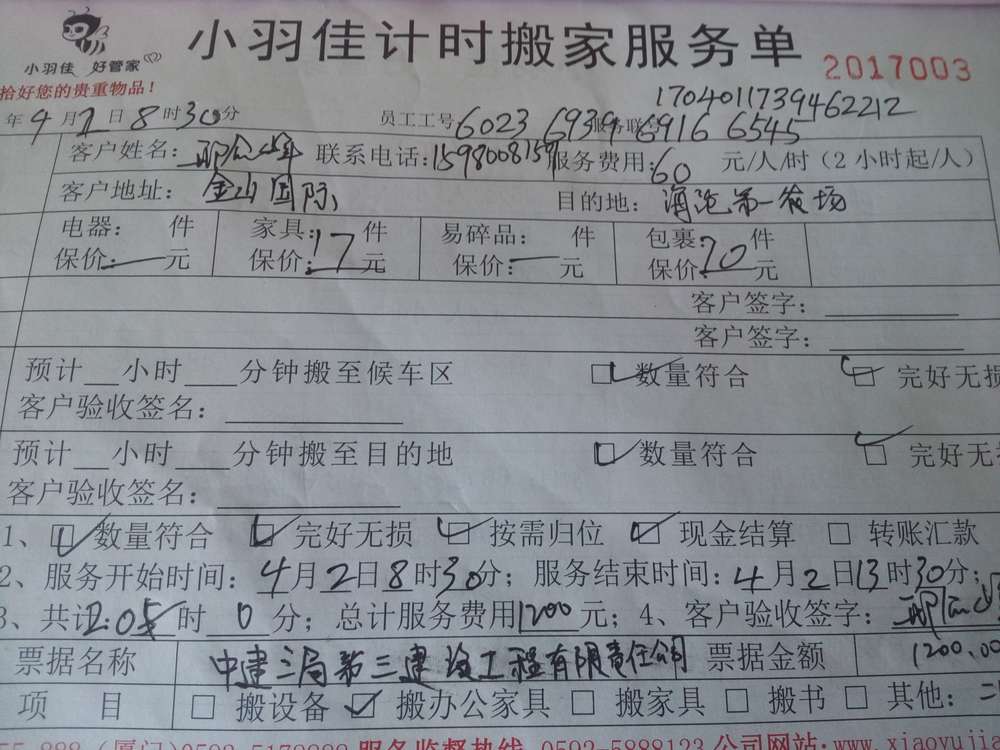 小羽佳计时搬家服务单
小羽佳 好管家
2017003
拾好您的贵重物品!
1704011739462212
年4月2日8时30分 员工工号 6023 6939 服务联 6916 6545
客户姓名: 联系电话:1598008159 服务费用:60 元/人/时(2小时起/人)
客户地址: 金山国际 目的地: 海沧第一农场
电器: 件 家具:17件 易碎品: 件 包裹:70件
保价: 元 保价: 元 保价: 元 保价: 元
客户签字:
客户签字:
预计__小时___分钟搬至候车区 ☑数量符合 ☑完好无损
客户验收签名:
预计__小时___分钟搬至目的地 ☑数量符合 ☑完好无
客户验收签名:
1、☑数量符合 ☑完好无损 ☑按需归位 ☑现金结算 □转账汇款
2、服务开始时间:4月2日8时30分;服务结束时间:4月2日13时30分;
3、共计 05时0分;总计服务费用1200元;4、客户验收签字:
票据名称 中建三局第三建设工程有限责任公司 票据金额 1200.00
项 目 □搬设备 ☑搬办公家具 □搬家具 □搬书 □其他:
服务监督热线 0592-5888123 公司网站:www.xiaoyujia